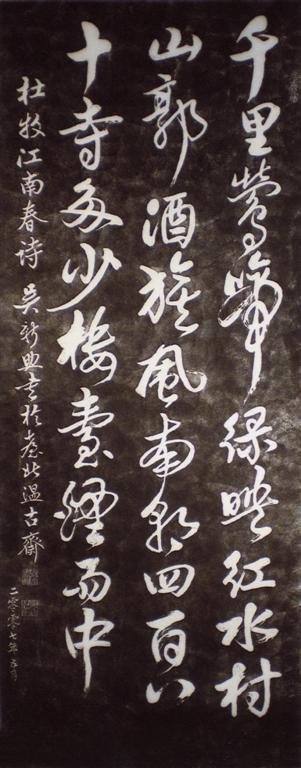 千里鶯啼綠映紅水村
山郭酒旗風南朝四百八
十寺多少楼臺煙雨中
杜牧江南春诗 吴新興書於臺北温古齋
二零零七年五月